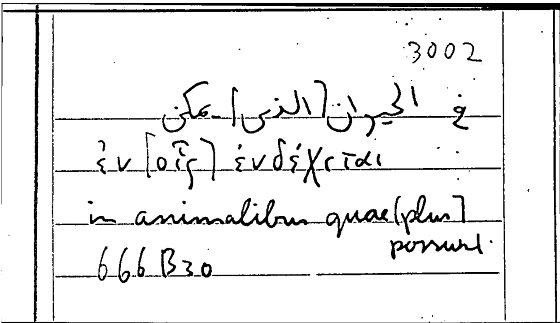 3002
في الحيوان [الذي] يمكن
ἐν [οἷς] ἐνδέχεται
in animalibus quae [plus]
possunt.
666 B30